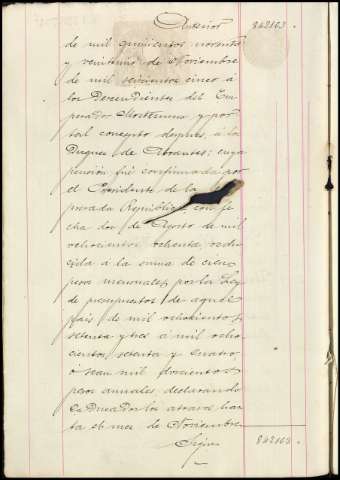 Anterior 842163.
de mil quinientos noventa
y veintiuno de Noviembre
de mil seiscientos cinco á
los Descendientes del Em
perador Moctezuma y por
tal concepto despues á los
Duques de Abrantes; cuya
pensión fué confirmada por
el Presidente de la
presada República, con fe
cha dos de Agosto de mil
ochocientos ochenta, redu
cida á la suma de cien
pesos mensuales, por la Ley
de presupuestos de aquel
país de mil ochocientos
setenta y tres á mil ocho
cientos setenta y cuatro,
ó sean mil doscientos
pesos anuales, declarando
los atrasos has
ta el mes de Noviembre
Sigue 842163.